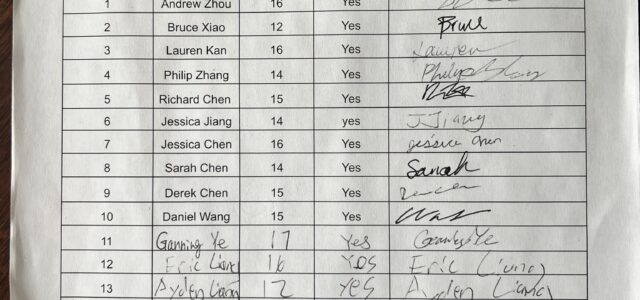 1 Andrew Zhou 16 Yes
2 Bruce Xiao 12 Yes Bruce
3 Lauren Kan 16 Yes Lauren
4 Philip Zhang 14 Yes Philip
5 Richard Chen 15 Yes
6 Jessica Jiang 14 yes J Jiang
7 Jessica Chen 16 Yes jessica chen
8 Sarah Chen 14 Yes Sarah
9 Derek Chen 15 Yes
10 Daniel Wang 15 Yes
11 Ganning Ye 17 Yes Ganning Ye
12 Eric Liang 16 Yes Eric Liang
13 Ayden Liang 12 Yes Ayden Liang